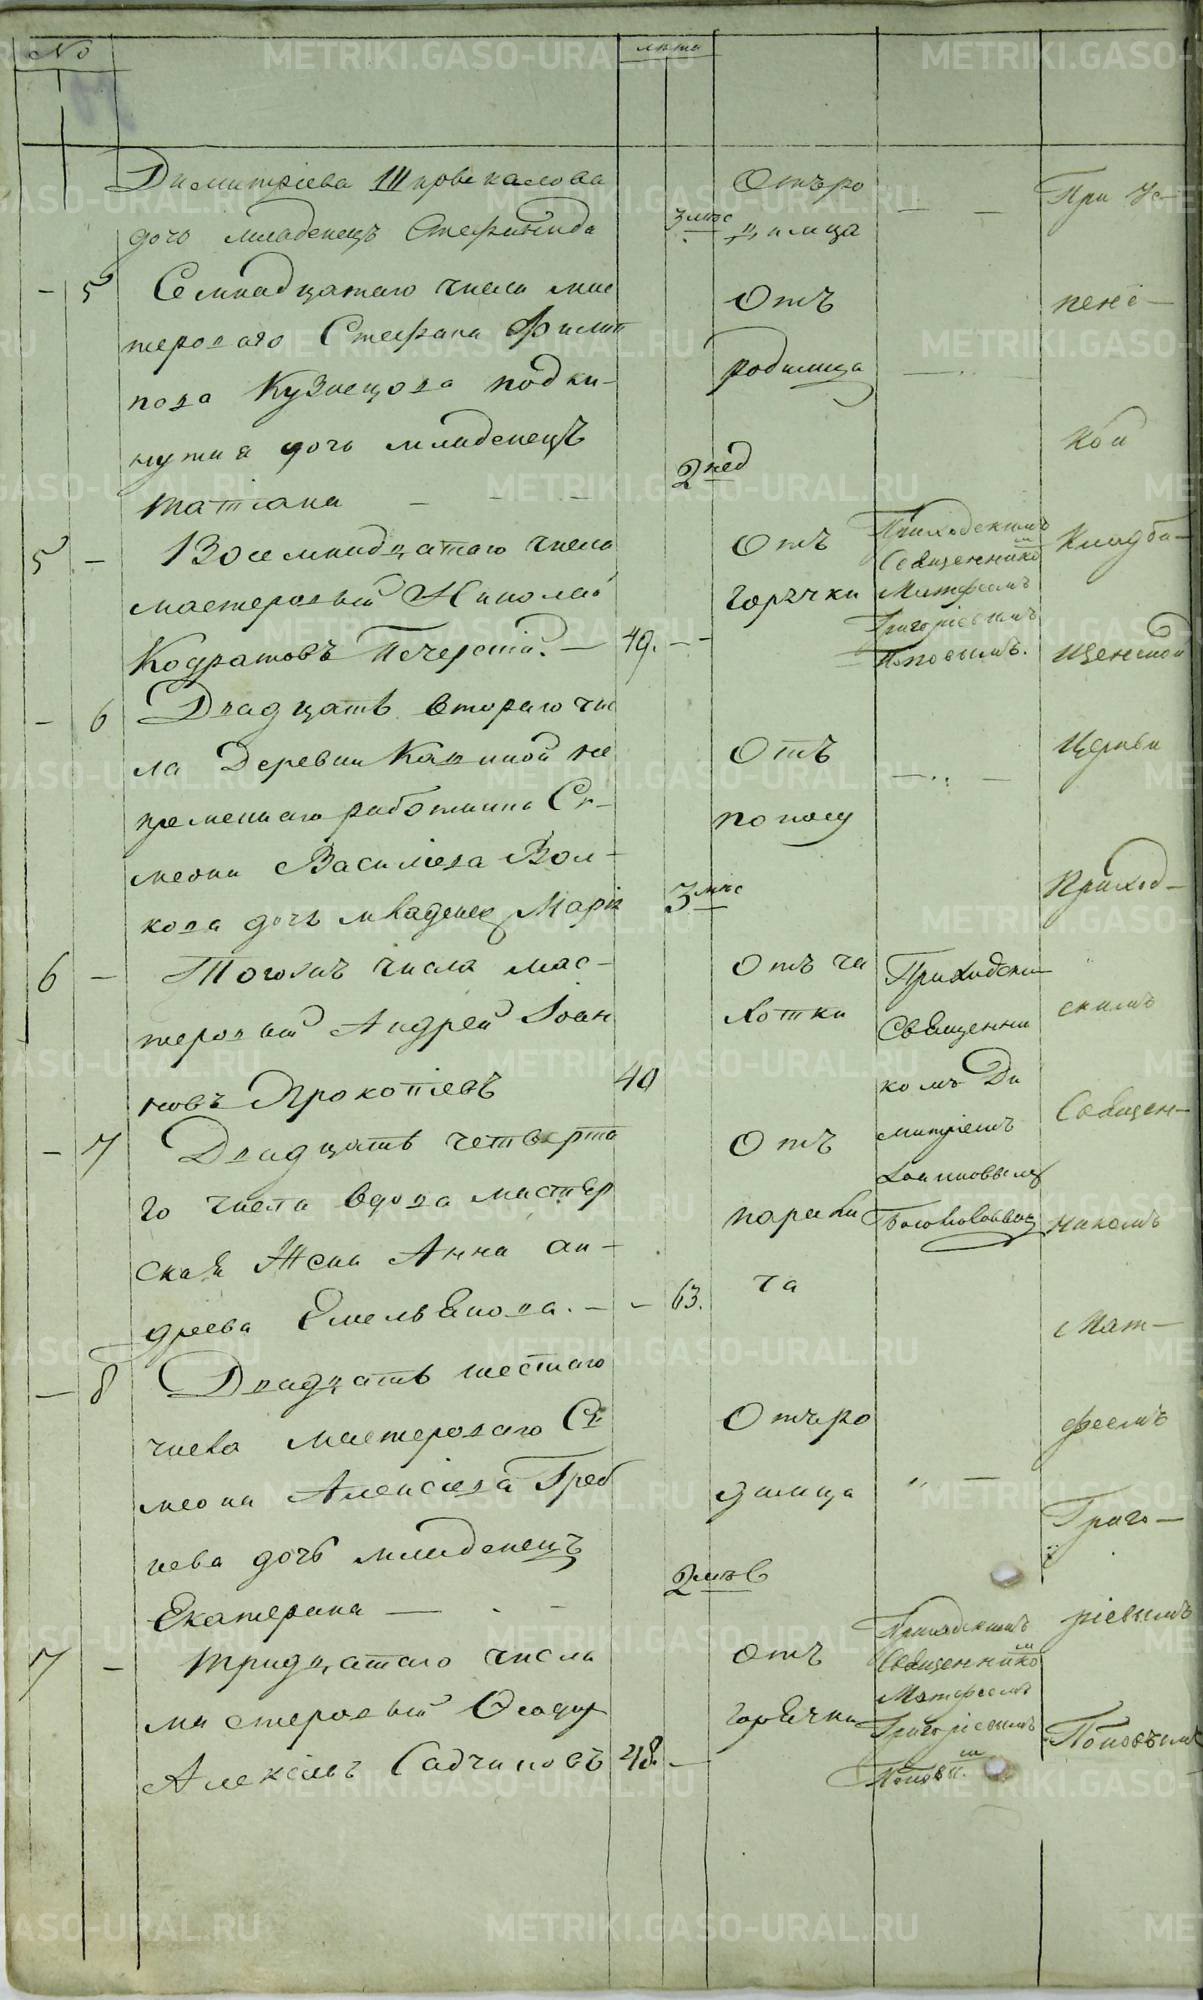 № лѣта
Димитріева Шровкалова
дочь младенецъ Стефанида
3 мѣс
Отъ ро
димца
При Ус-
- 5 Семнадцатаго числа мас
тероваго Стефана Филип
пова Кузнецова подки-
нутая дочь младенецъ
Татіана
2 нед
Отъ
родимца
пенс-
кой
5 - Восемнадцатаго числа
мастеровый Николай
Кодратовъ Печерскій. - 49. -
Отъ
горячки
Приходскимъ
Священникомъ
Матфеемъ
Григоріевымъ
Поповымъ.
Кладби-
щенской
- 6 Двадцать втораго чи
сла Деревни Кашиной не
премѣннаго работника Си-
меона Василіева Вол-
кова дочь младенец Марія
3 мѣс
Отъ
поносу
Церкви
Приход-
6 - Тогожъ числа мас-
теровый Андрей Іоан
новъ Прокопіевъ 40
Отъ ча
хотки
Приходски
Священни
комъ Ди
митріемъ
Іоанновымъ
Боголюбовым
скимъ
Священ-
- 7 Двадцать четверта
го числа вдова мастер
ская Жена Анна Ан-
дреева Емельянова. - - 63.
Отъ
парали
ча
никомъ
Мат-
- 8 Двадцать шестаго
числа мастероваго Си
меона Алексіева Греб
нева дочь младенецъ
Екатерина -
2 мѣс
Отъ ро
димца
феемъ
Григо-
7 - Тридцатаго числа
мастеровый Ѳеодор
Алексіевъ Садчиковъ 48. -
отъ
горячки
Приходскимъ
Священникомъ
Матфеемъ
Григоріевымъ
Поповым.
ріевымъ
Поповымъ
METRIKI.GASO-URAL.RU